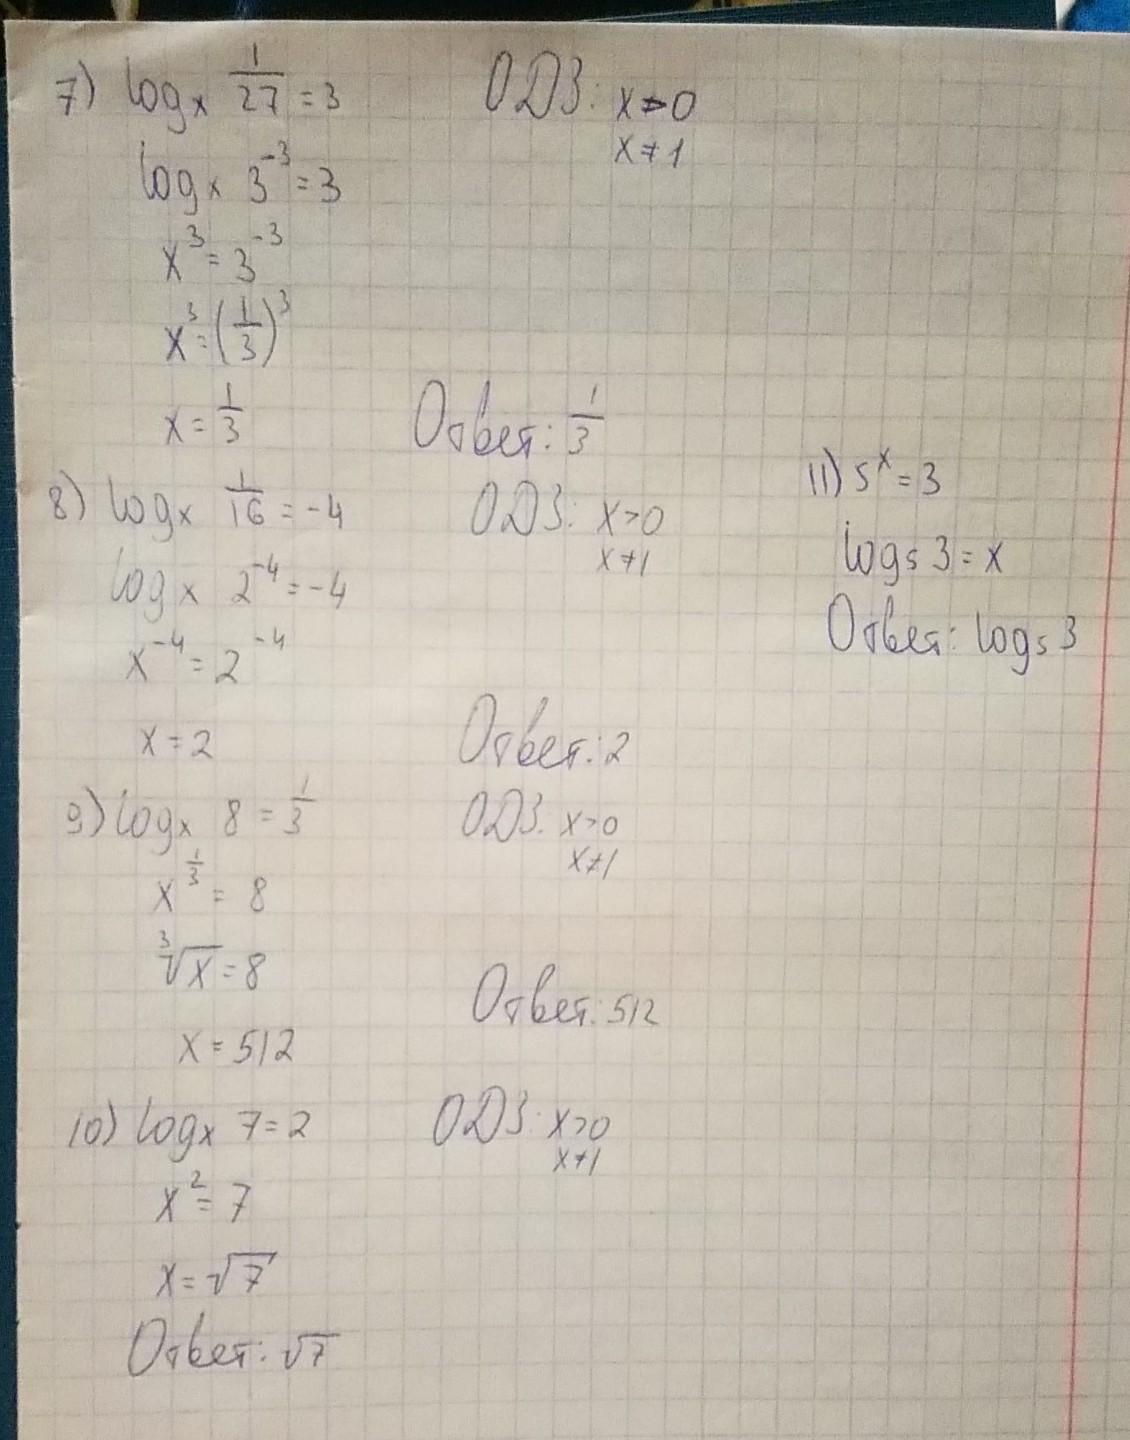 7) log_x 1/27 = 3 ОДЗ: x>0
x≠1
log_x 3^-3 = 3
x^3 = 3^-3
x^3 = (1/3)^3
x = 1/3 Ответ: 1/3
8) log_x 1/16 = -4 ОДЗ: x>0
x≠1
log_x 2^-4 = -4
x^-4 = 2^-4
x = 2 Ответ: 2
9) log_x 8 = 1/3 ОДЗ: x>0
x≠1
x^1/3 = 8
∛x = 8
x = 512 Ответ: 512
10) log_x 7 = 2 ОДЗ: x>0
x≠1
x^2 = 7
x = √7
Ответ: √7
11) 5^x = 3
log_5 3 = x
Ответ: log_5 3